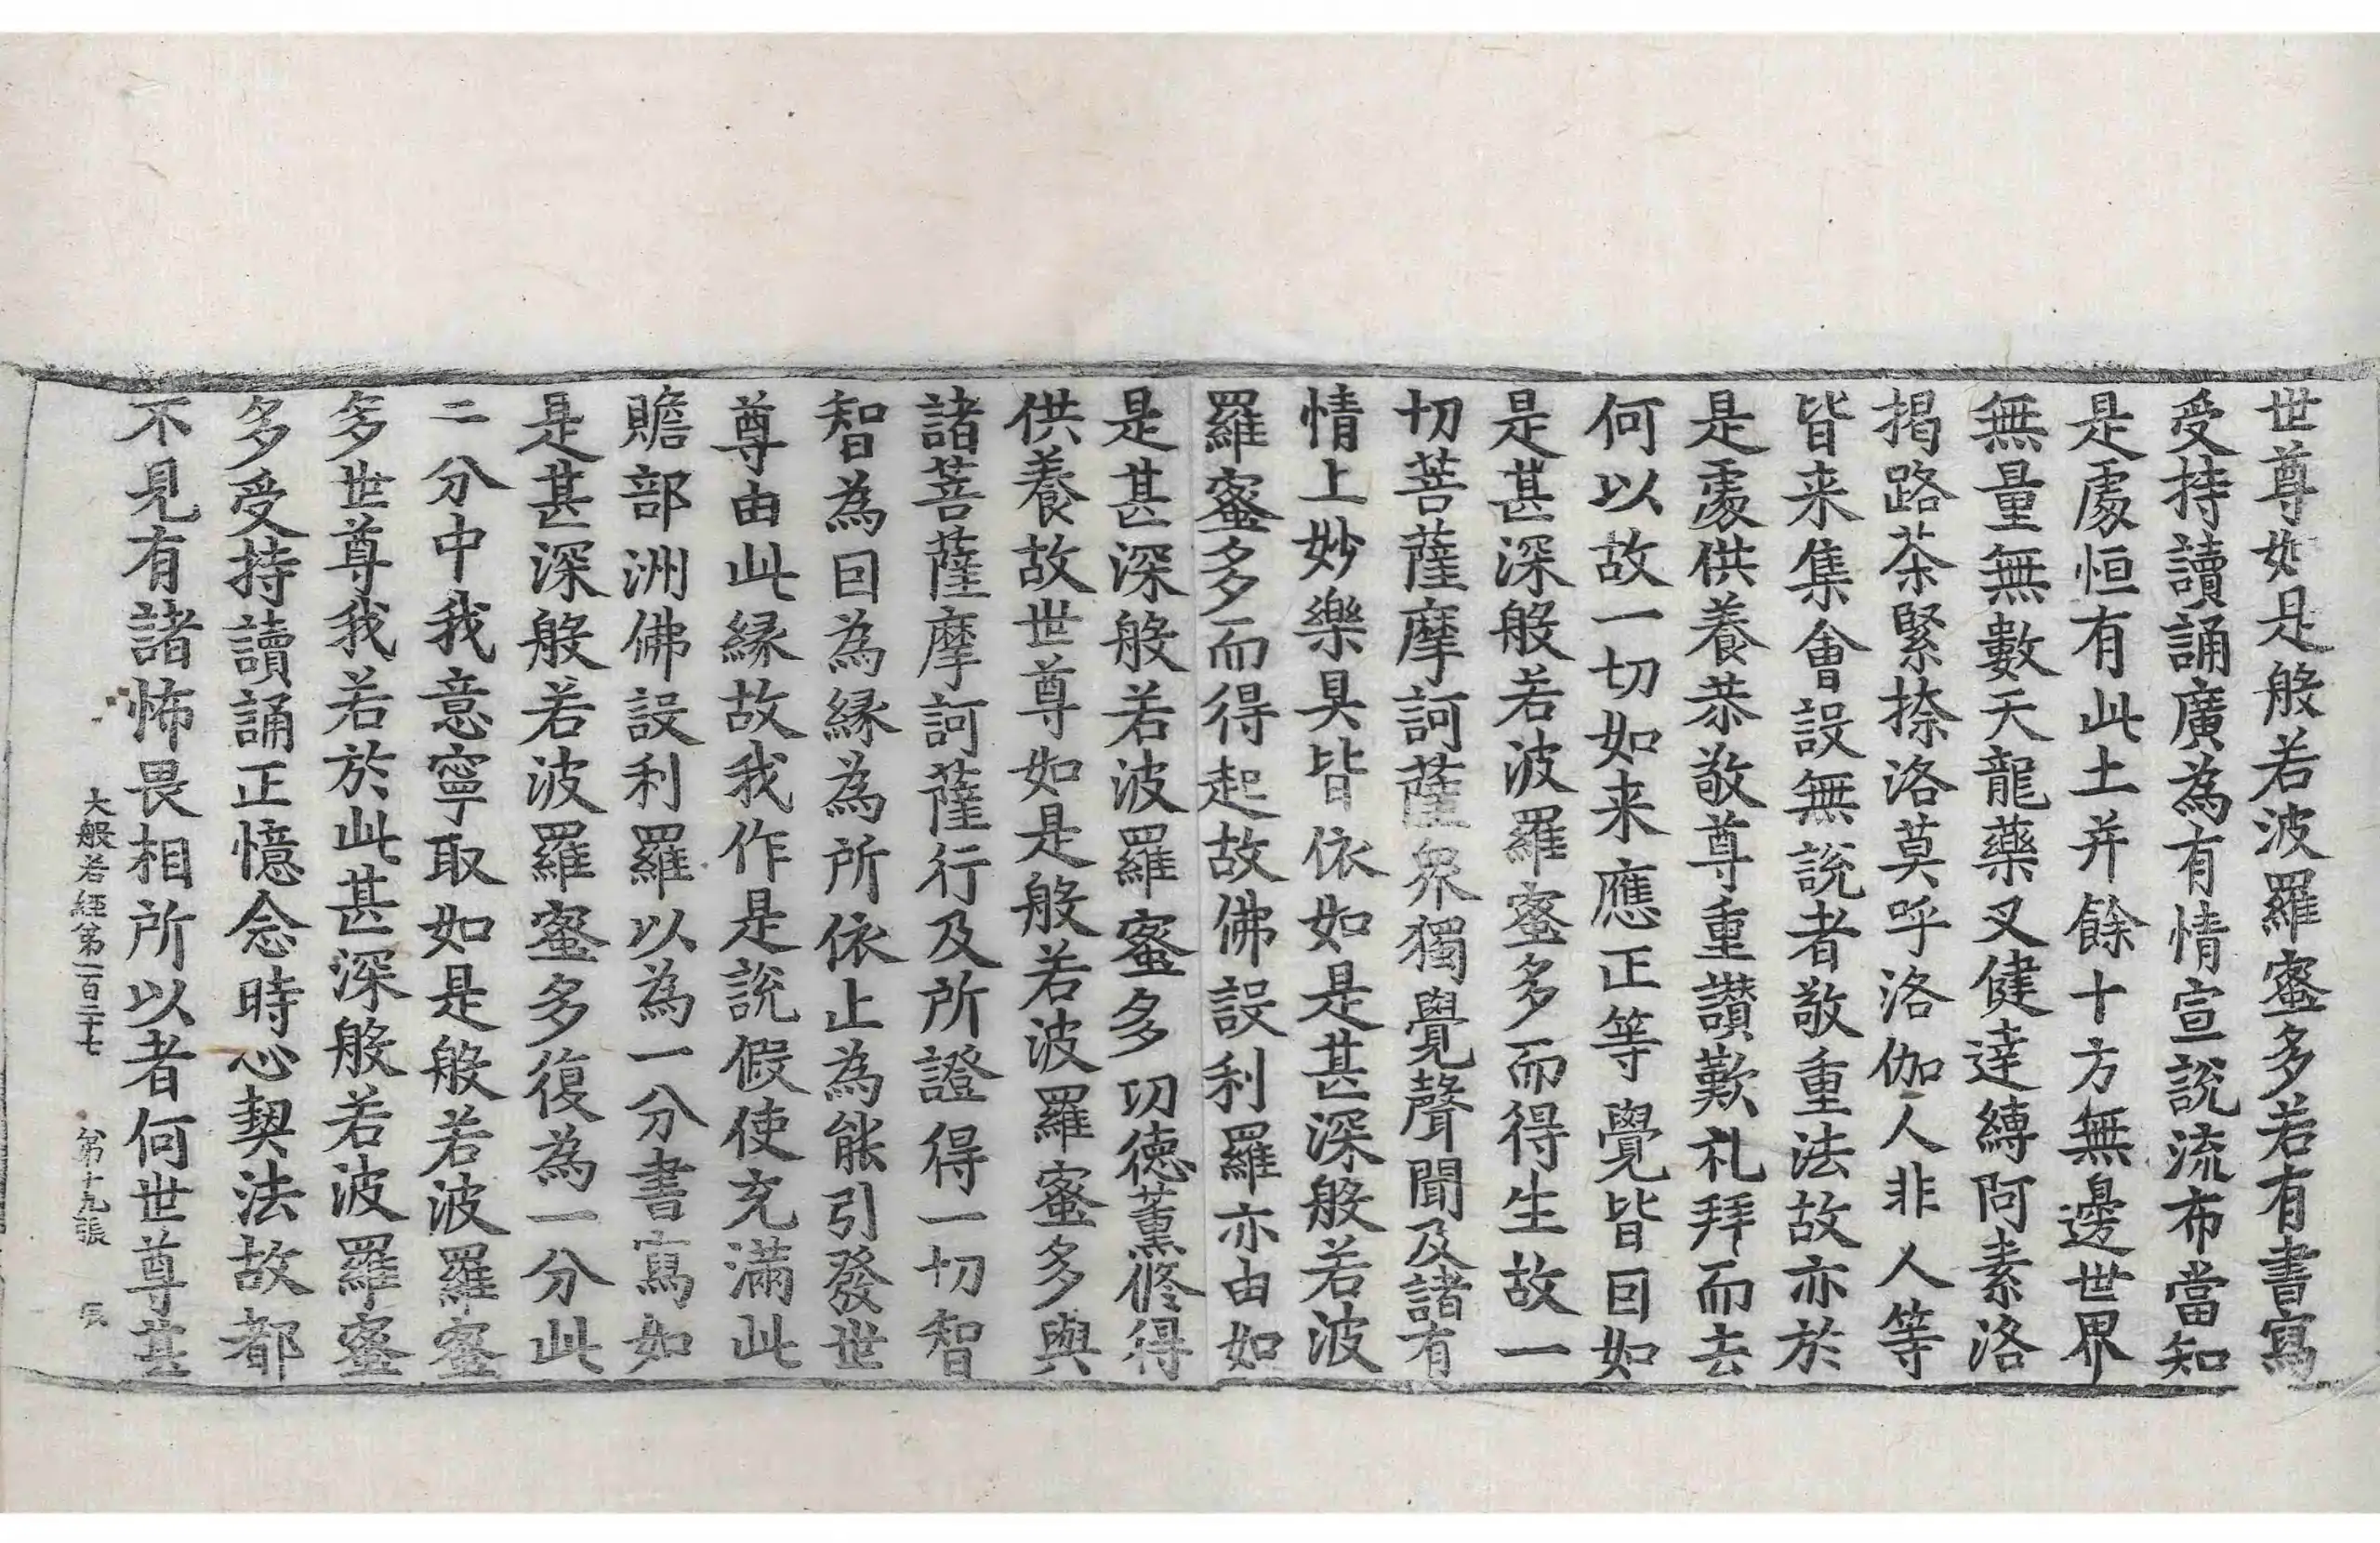 世尊如是般若波羅蜜多若有書寫
受持讀誦廣為有情宣說流布當知
是處恒有此土并餘十方無邊世界
無量無數天龍藥叉健達縛阿素洛
揭路荼緊捺洛莫呼洛伽人非人等
皆来集會設無說者敬重法故亦於
是處供養恭敬尊重讚歎礼拜而去
何以故一切如来應正等覺皆囙如
是甚深般若波羅蜜多而得生故一
切菩薩摩訶薩衆獨覺聲聞及諸有
情上妙樂具皆依如是甚深般若波
羅蜜多而得起故佛設利羅亦由如
是甚深般若波羅蜜多功德薰修得
供養故世尊如是般若波羅蜜多與
諸菩薩摩訶薩行及所證得一切智
智為囙為縁為所依止為能引發世
尊由此縁故我作是說假使充滿此
贍部洲佛設利羅以為一分書寫如
是甚深般若波羅蜜多復為一分此
二分中我意寧取如是般若波羅蜜
多世尊我若於此甚深般若波羅蜜
多受持讀誦正憶念時心契法故都
不見有諸怖畏相所以者何世尊甚
大般若經第一百二十七 第十九張 辰